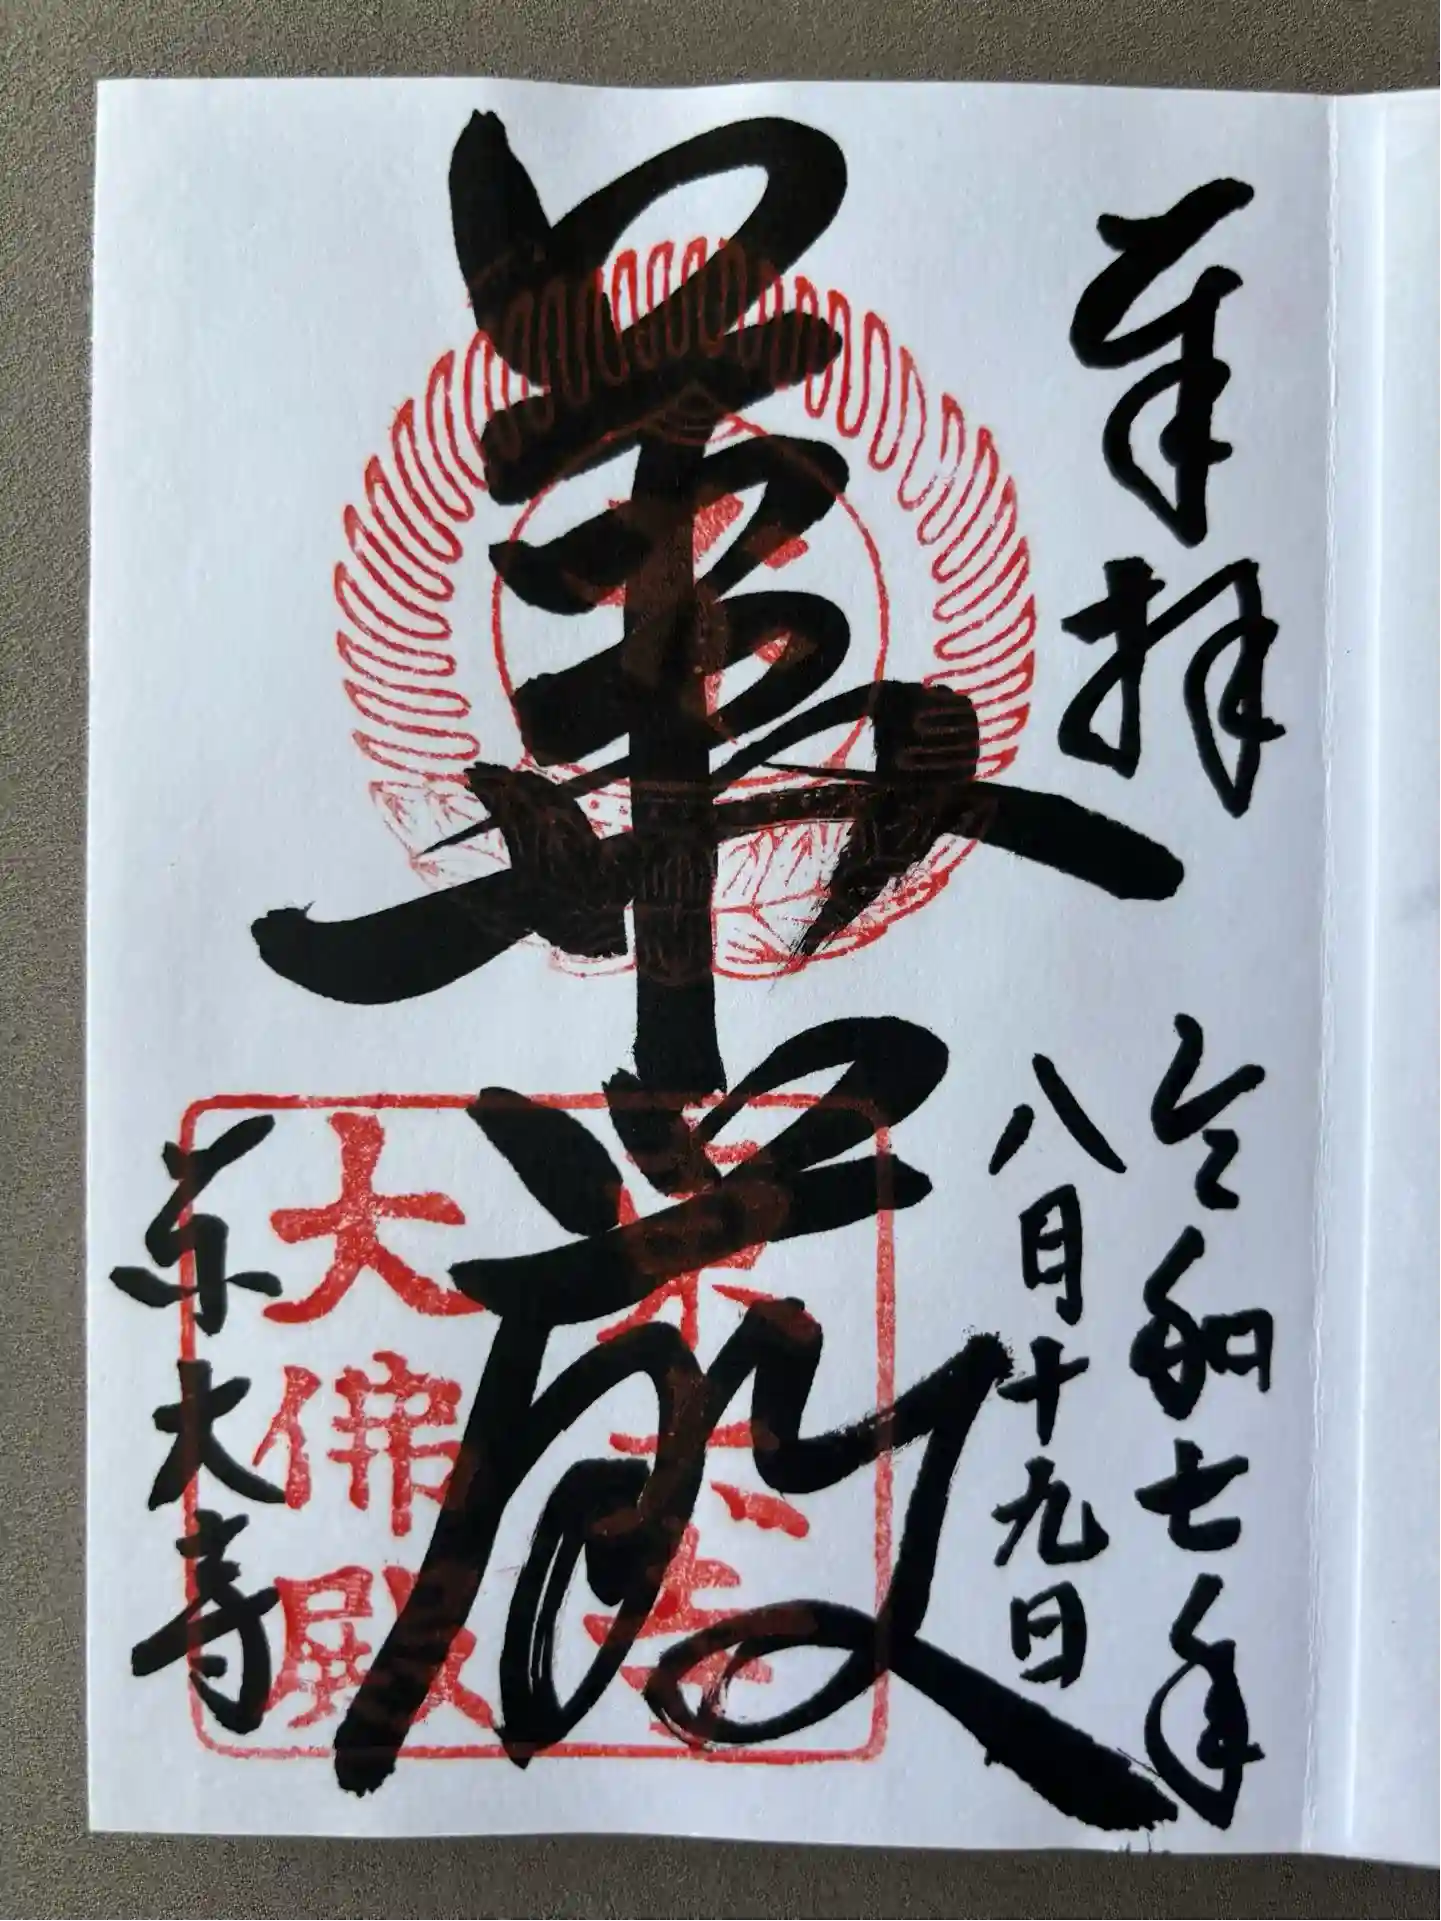 奉拝
令和七年
八月十九日
華厳
東大寺
大佛殿
東大寺